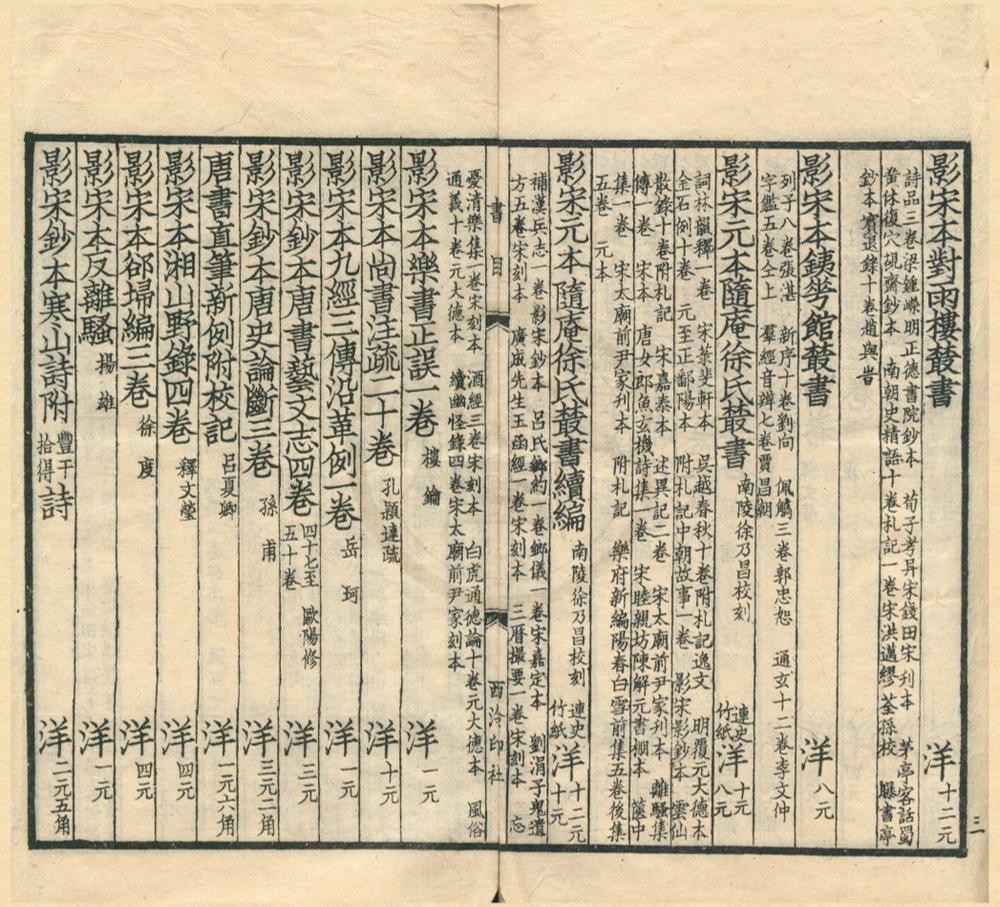 影宋本對雨樓叢書　洋十二元
詩品三卷梁鍾嶸明正德書院鈔本　荀子考異宋錢田宋刋本　茅亭客話蜀
黄休復穴硯齋鈔本　南朝史精語十卷札記一卷宋洪邁繆荃孫校　曝書亭
鈔本賓退錄十卷趙與旹
影宋本鐵琴館叢書　洋八元
列子八卷張湛　新序十卷劉向　佩觿三卷郭忠恕　通玄十二卷李文仲
字鑑五卷仝上　羣經音辨七卷賈昌朝
影宋元本隨庵徐氏叢書　南陵徐乃昌校刻　連史竹紙洋十元八元
詞林韻釋一卷　宋菉斐軒本　吳越春秋十卷附札記逸文　明覆元大德本
金石例十卷　元至正鄱陽本　附札記中朝故事一卷　影宋影鈔本　雲仙
散錄十卷附札記　宋嘉泰本　述異記二卷　宋太廟前尹家刋本　離騷集
傳一卷　宋本　唐女郎魚玄機詩集一卷　宋睦親坊陳解元書棚本　篋中
集一卷　宋太廟前尹家刋本　附札記　樂府新編陽春白雪前集五卷後集
五卷　元本
影宋元本隨庵徐氏叢書續編　南陵徐乃昌校刻　連史竹紙洋十二元十元
補漢兵志一卷影宋鈔本　呂氏鄉約一卷鄉儀一卷宋嘉定本　劉涓子鬼遺
方五卷宋刻本　廣成先生玉函經一卷宋刻本　三曆撮要一卷宋刻本　忘
書目　西泠印社
憂清樂集一卷宋刻本　酒經三卷宋刻本　白虎通德論十卷元大德本　風俗
通義十卷元大德本　續幽怪錄四卷宋太廟前尹家刻本
影宋本樂書正誤一卷　樓鑰　洋一元
影宋本尚書注疏二十卷　孔穎達疏　洋十元
影宋本九經三傳沿革例一卷　岳珂　洋一元
影宋鈔本唐書藝文志四卷　四十七至五十卷　歐陽修　洋三元
影宋鈔本唐史論斷三卷　孫甫　洋三元二角
唐書直筆新例附校記　呂夏卿　洋一元六角
影宋本湘山野錄四卷　釋文瑩　洋四元
影宋本郤埽編三卷　徐度　洋四元
影宋本反離騷　揚雄　洋一元
影宋鈔本寒山詩附豐干拾得詩　洋二元五角
三